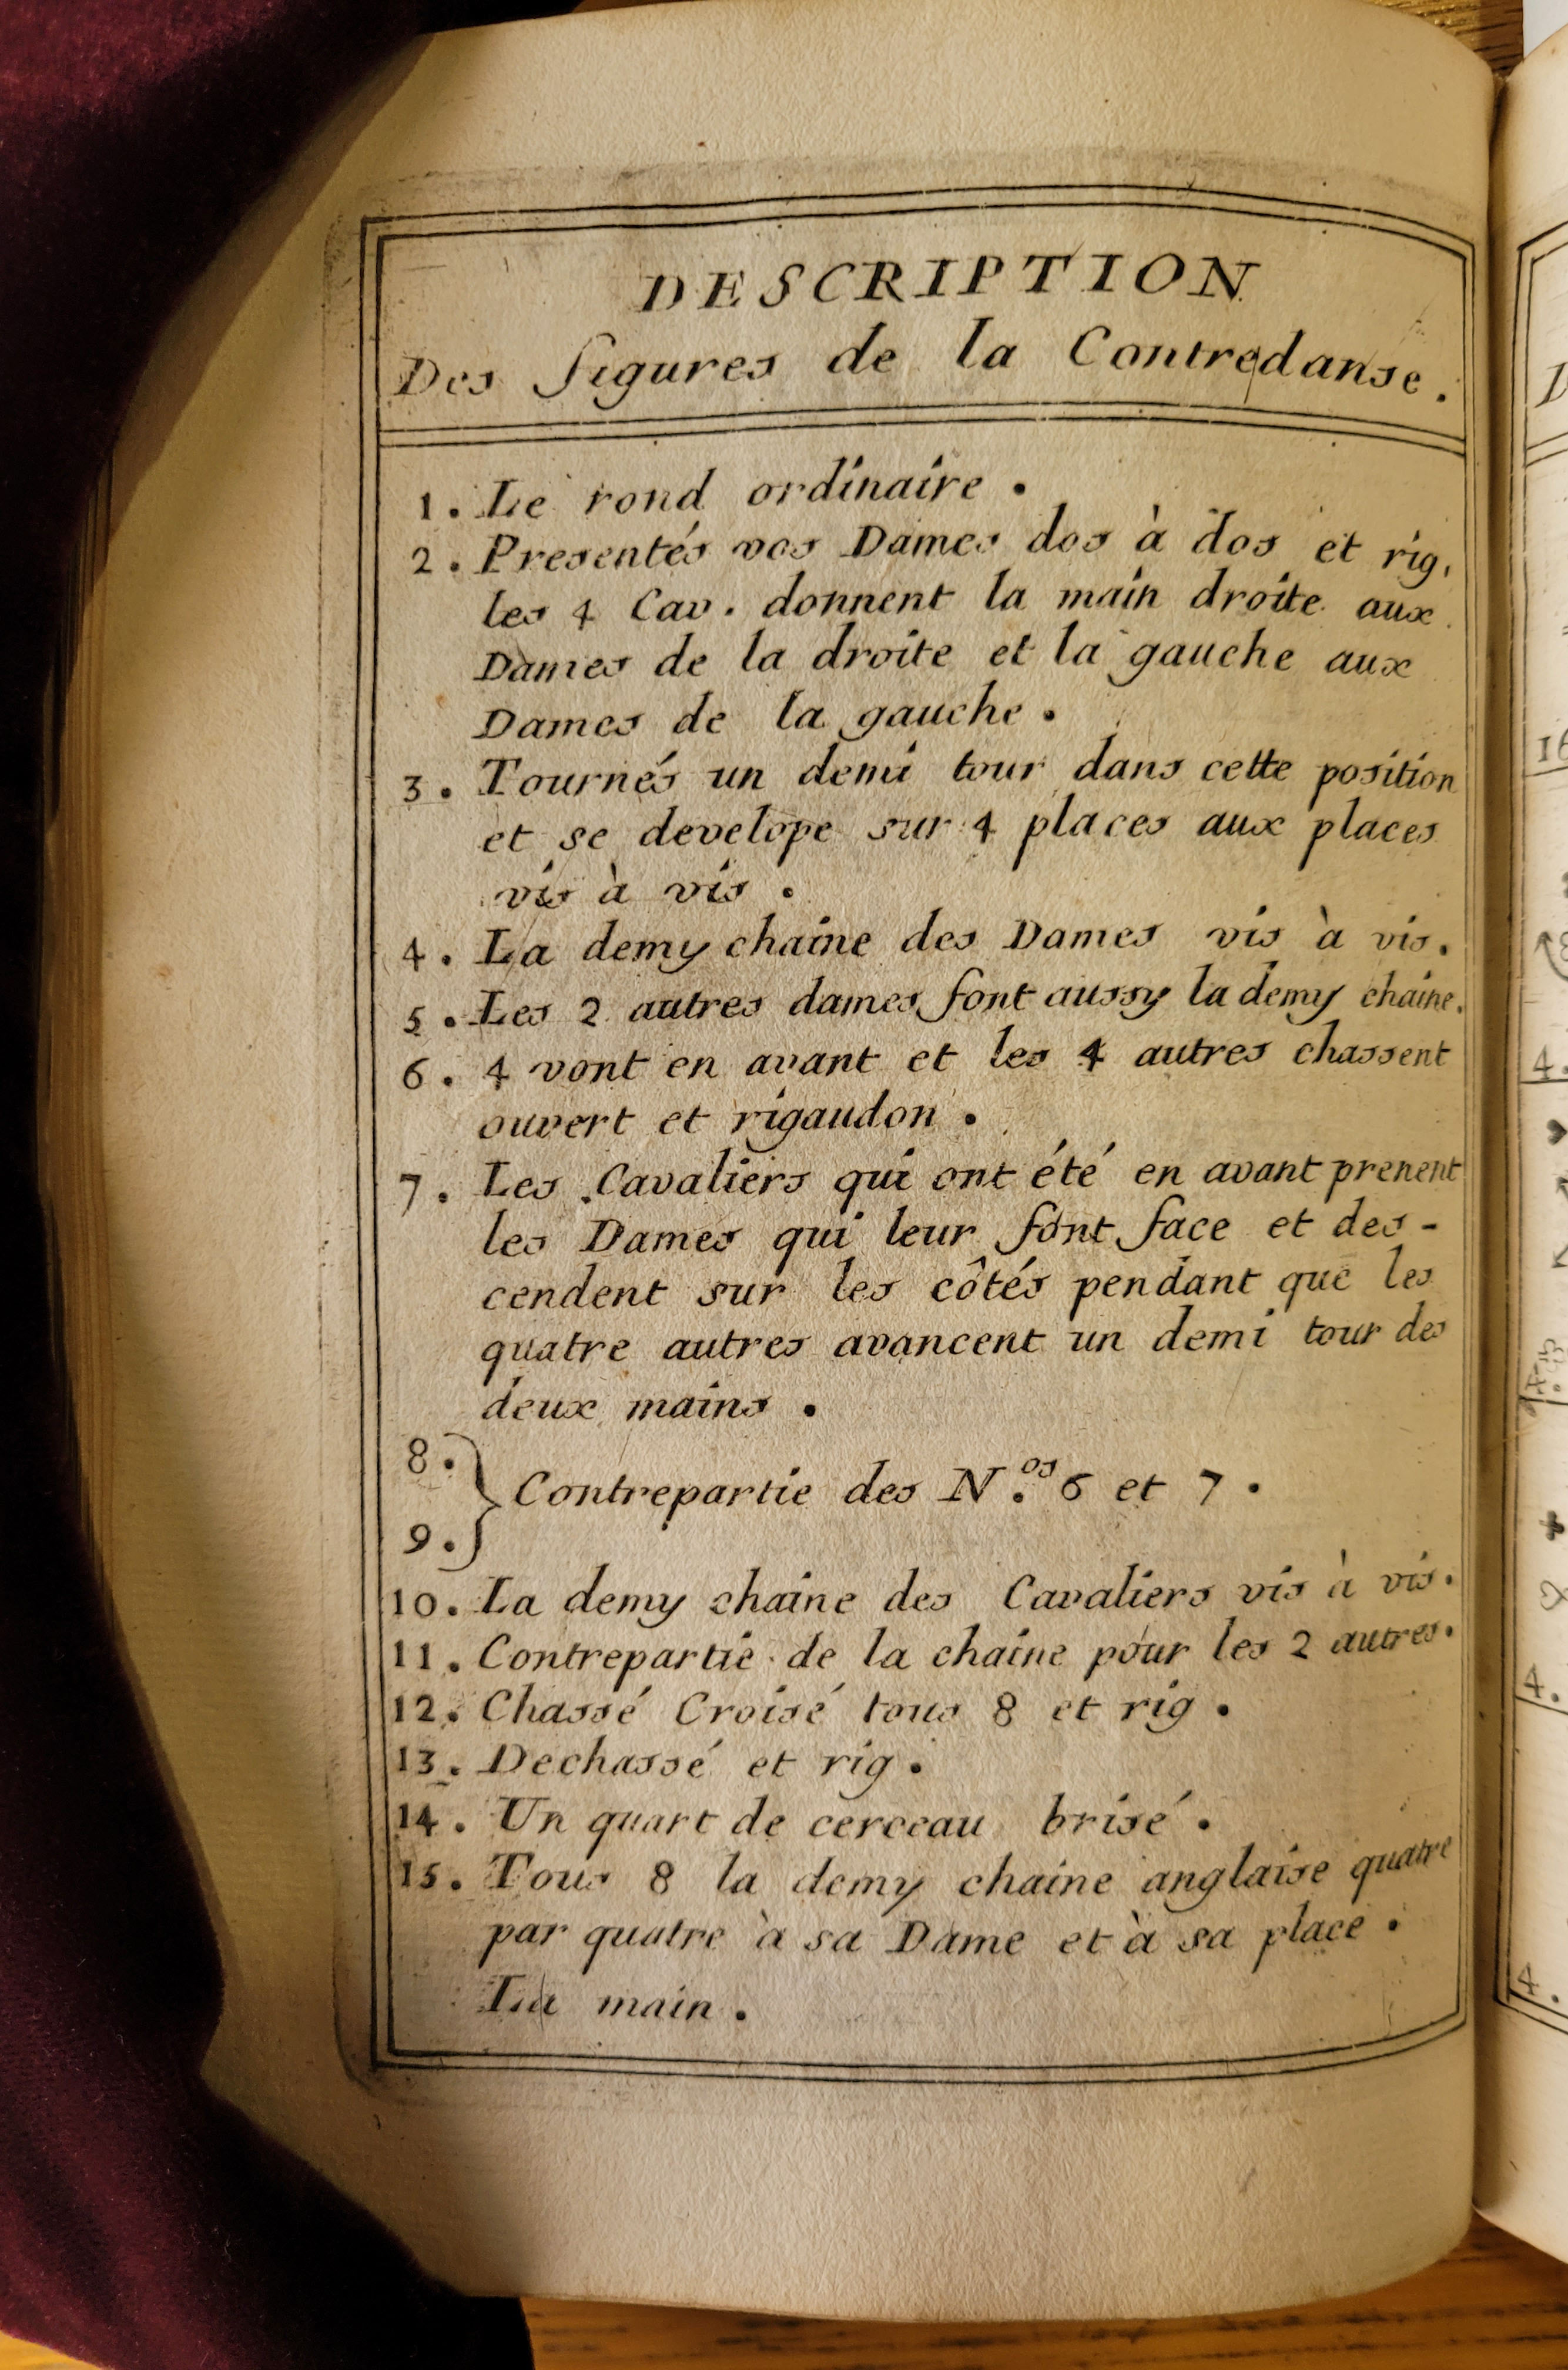 DESCRIPTION
Des figures de la Contredanse.
1. Le rond ordinaire.
2. Presentés vos Dames dos à dos et rig,
les 4 Cav. donnent la main droite aux
Dames de la droite et la gauche aux
Dames de la gauche.
3. Tournés un demi tour dans cette position
et se develope sur 4 places aux places
vis à vis.
4. La demy chaine des Dames vis à vis.
5. Les 2 autres dames font aussy la demy chaine.
6. 4 vont en avant et les 4 autres chassent
ouvert et rigaudon.
7. Les Cavaliers qui ont été en avant prenent
les Dames qui leur font face et des-
cendent sur les côtés pendant que les
quatre autres avancent un demi tour des
deux mains.
8.
Contrepartie des N.os 6 et 7.
9.
10. La demy chaine des Cavaliers vis à vis.
11. Contrepartie de la chaine pour les 2 autres.
12. Chassé Croisé tous 8 et rig.
13. Dechassé et rig.
14. Un quart de cerceau brisé.
15. Tous 8 la demy chaine anglaise quatre
par quatre à sa Dame et à sa place.
La main.
16
4.
4.
4.